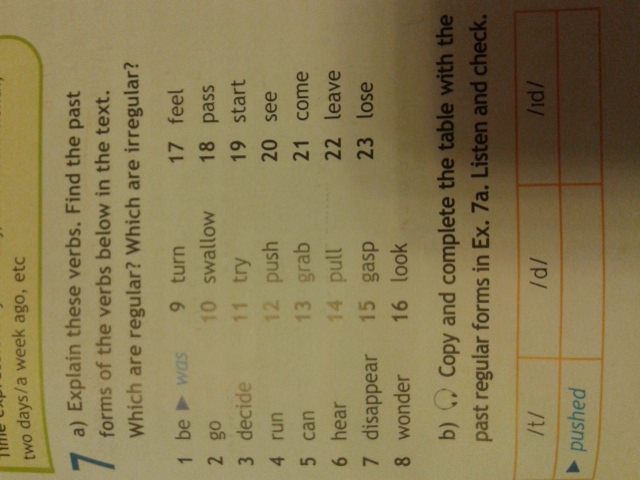 two days/a week ago, etc
7 a) Explain these verbs. Find the past
forms of the verbs below in the text.
Which are regular? Which are irregular?
1 be ▶ was
2 go
3 decide
4 run
5 can
6 hear
7 disappear
8 wonder
9 turn
10 swallow
11 try
12 push
13 grab
14 pull
15 gasp
16 look
17 feel
18 pass
19 start
20 see
21 come
22 leave
23 lose
b) Copy and complete the table with the
past regular forms in Ex. 7a. Listen and check.
/t/ /d/ /ɪd/
▶ pushed